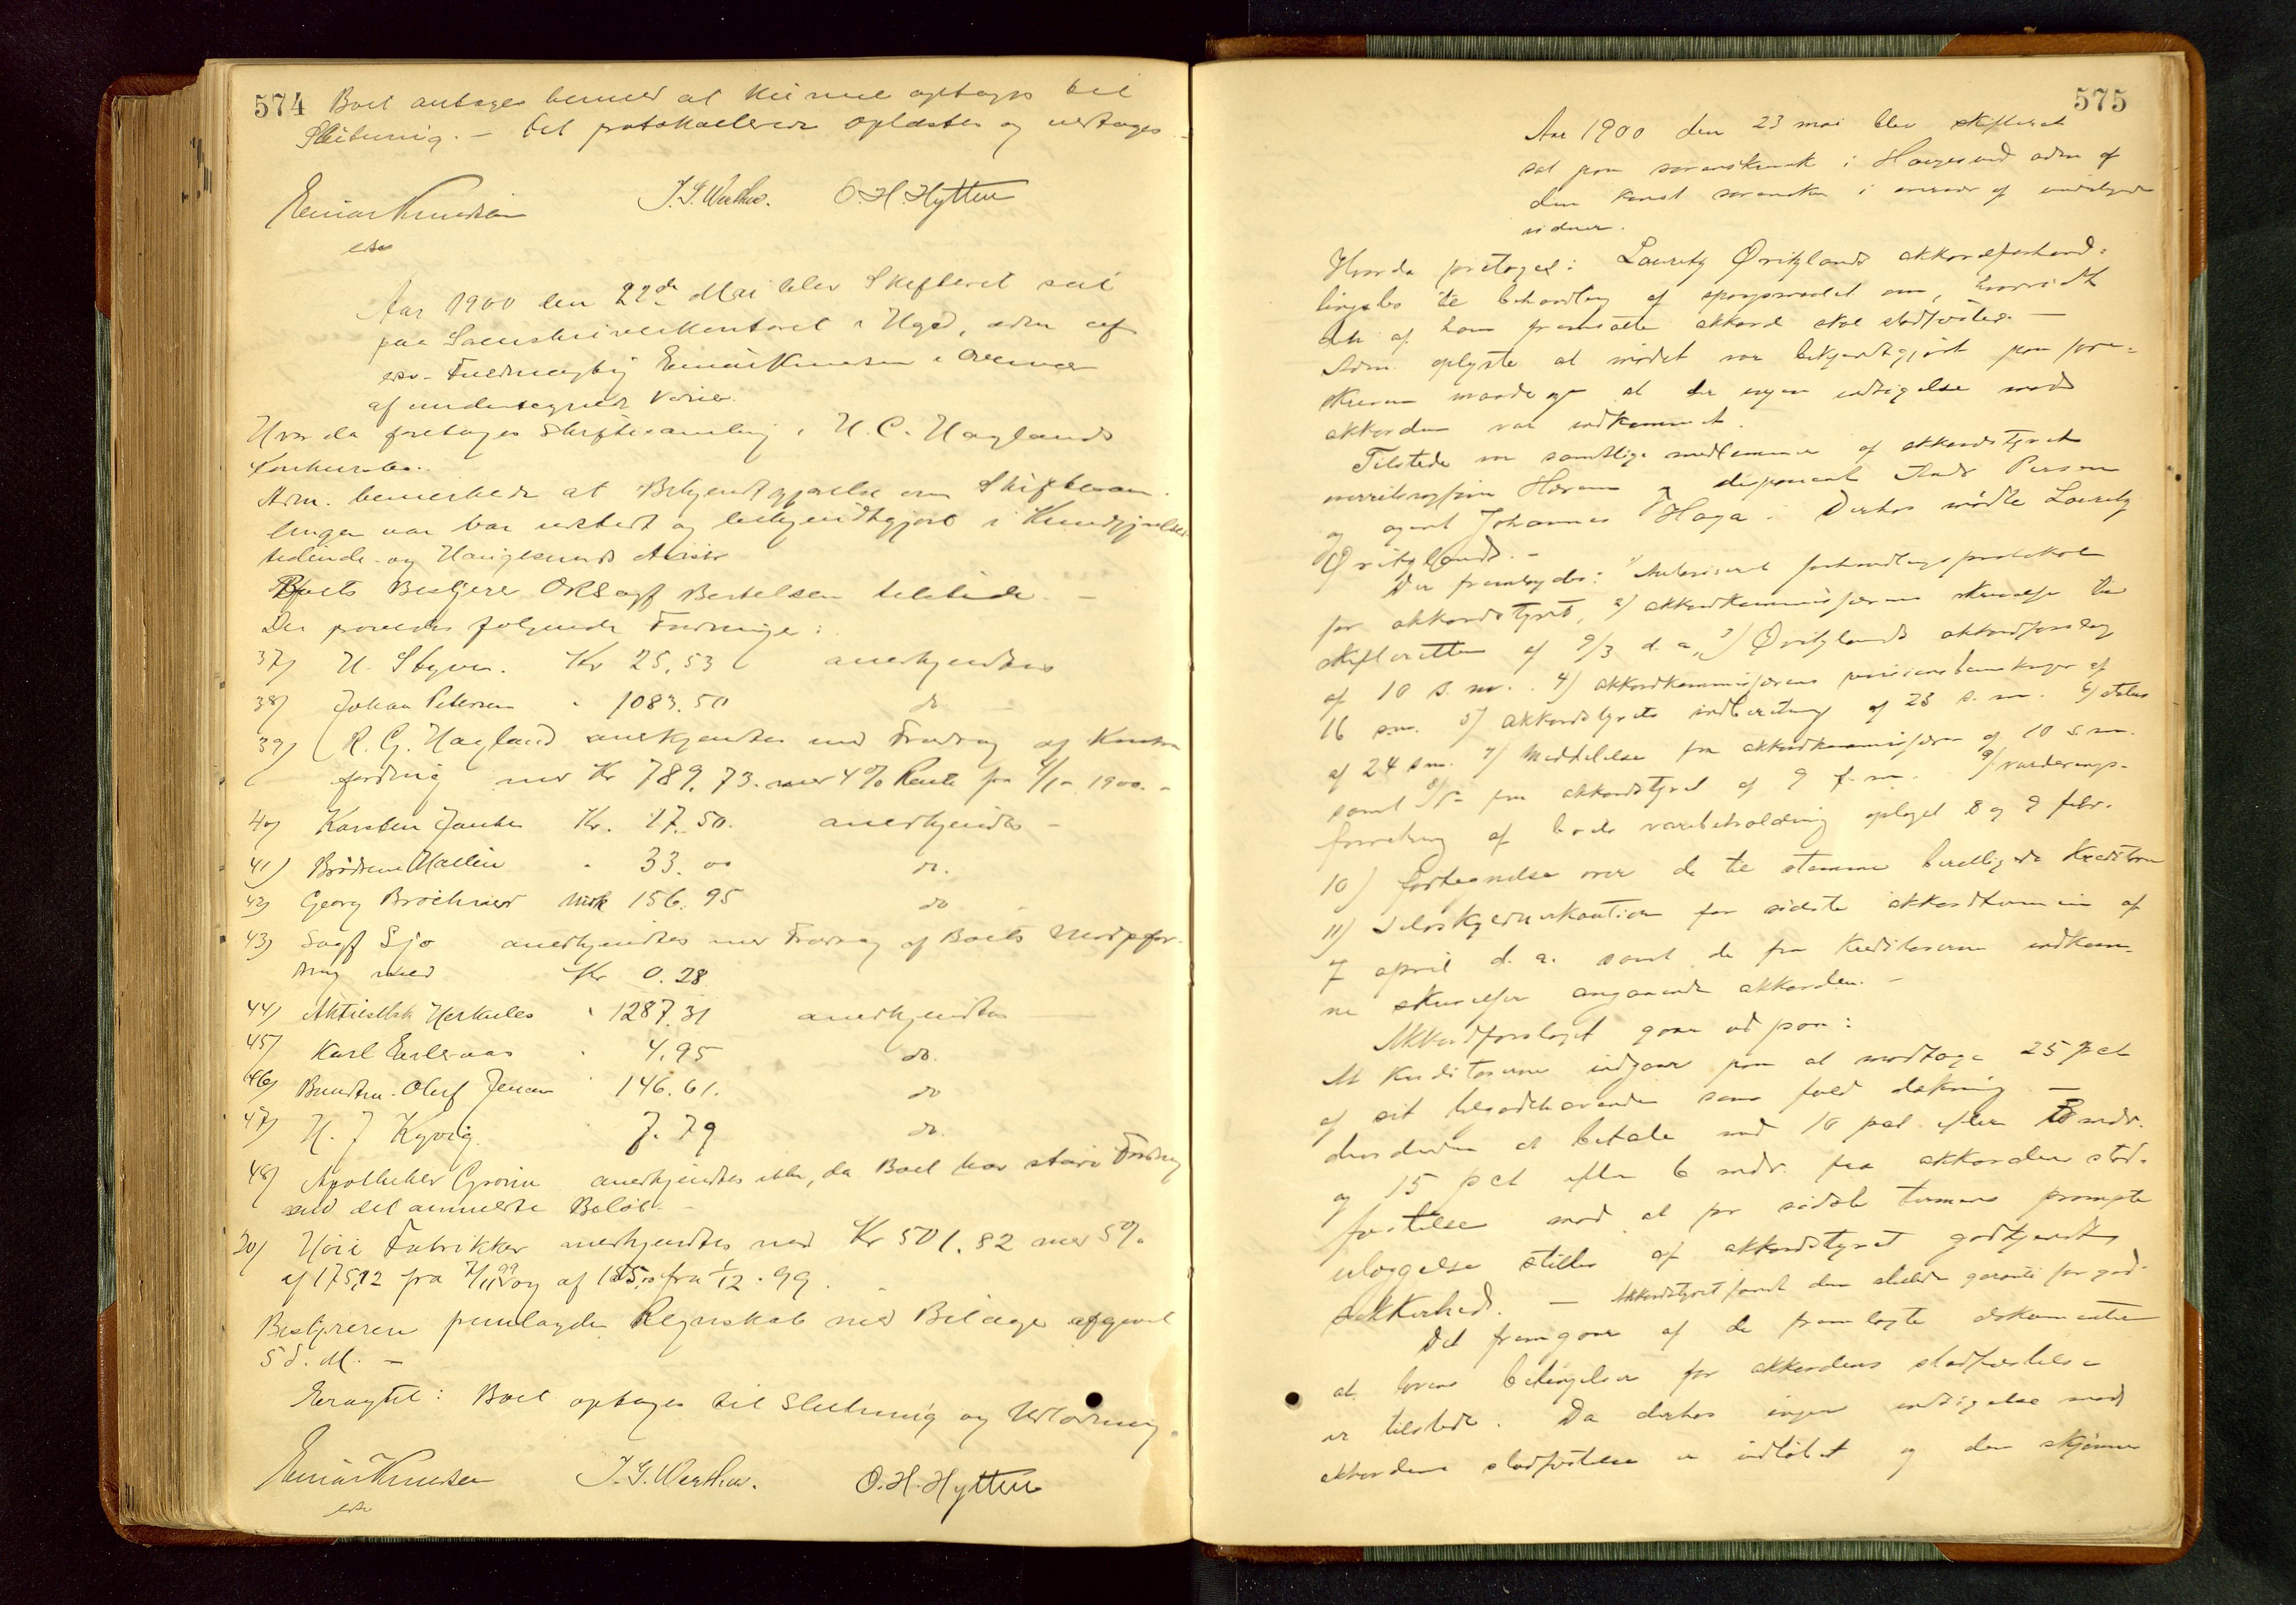 574
Boet antages hermed at kunne optages til
Slutning. – Det protokollerede oplæstes og vedtages
Einar Knudsen J. G. Werther. O. H. Hytten
cst
Aar 1900 den 22de Mai blev Skifteret sat
paa Sorenskriverkontoret i Hgsd, adm af
edsv. Fuldmægtig Einar Knudsen i Overvær
af undertegnede Vidner.
Hvor da foretoges Skiftesamling i H. C. Haglands
Konkursbo.
Adm. bemerkede at Bekjendtgjørelse om Skiftesam-
lingen var udstedt og bekjendtgjort i Kundgjørelses-
tidende og Haugesunds Avis
Boets Bestyrer ORSagf Bertelsen tilstede. –
Der prøvedes følgende Fordringer:
37) H. Styve. Kr 25,53 anerkjendtes
38) Johan Petersen " 1083.50 do –
39) R. G. Hagland anerkjendtes med Fradrag af Kontra
fordring med Kr 789,73. med 4% Rente fra 4/1 1900. –
40) Karsten Kr. 17.50. anerkjendtes –
41) Brødrene Hallin " 33.00 do.
42) Georg Brochner Mrk 156.95 do –
43) Sagf Sjo anerkjendtes med Fradrag af Boets Modfor-
dring med Kr 0.28
44) Aktieselsk Herkules " 1287.31 anerkjendtes
45) Karl " 4.95 do.
46) Olaf Jensen " 146.61. do
47) H. J Kyvig. " 7.79 do.
48) Apotheker Grønn anerkjendtes ikke, da Boet har større Fordring
end det anmeldte Beløb. –
20) Höie Fabrikker anerkjendtes med Kr 501.82 med 5%
af 175,12 fra 7/11 99 og af fra 1/12 . 99.
Bestyreren fremlagde Regnskab med Bilage afgivet
5 d. M. –
Eragtet: Boet optages til Slutning og Udlodning.
Einar Knudsen J. G. Werther. O. H. Hytten
cst
575
Aar 1900 den 23 mai blev skifteret
sat paa sorenskriverk i Haugesund adm af
den konst sorenskr i overvær af undertegnede
vidner.
Hvor da foretoges: Lauritz Qvitzlands akkordforhand-
lingsbo til behandling af spørgsmaalet om, hvorvidt
den af ham fremsatte akkord skal stadfæstes. –
Adm. oplyste at mødet var bekjendtgjort paa fore-
skreven maade og at der ingen indsigelse mod
akkorden var indkommet.
Tilstede var samtlige medlemmer af akkordstyret
overretssagfører og disponent Ths Person
og agent Johannes Haga. Derhos mødte Lauritz
Qvitzland. –
Der fremlagdes: 1) Autoriseret forhandlingsprotokol
for akkordstyret, 2) akkordkommissærens skrivelse til
skifteretten af 9/3 d. a., 3) Qvitzlands akkordforslag
af 10 s. m. 4) akkordkommissærens revisionsbemerkninger af
16 s.m. 5) akkordstyrets indberetning af 23 s. m. 6) dets
af 24 s.m. 7) Meddelelse fra akkordkommissæren af 10 s m.
samt 8) Do fra akkordstyret af 9 f. m. 9) vurderings-
forretning af boets varebeholdning optaget 8 og 9 febr.
10) fortegnelse over de til stemme berettigede kreditorer
11) selvskyldnerkaution for sidste akkordtermin af
7 april d. a. samt de fra kreditorerne indkom-
ne skrivelser angaaende akkorden. –
Akkordforslaget gaar ud paa:
At kreditorerne indgaar paa at modtage 25 pct
af sit tilgodehavende som fuld dækning –
desuden at betale med 10 pct. efter 3 mdr.
og 15 pct efter 6 mdr. fra akkordens stad-
fæstelse mod at for sidste termins prompte
erlæggelse stilles af akkordstyret godkjendt
sikkerhed. – Akkordstyret fandt den stillede garanti for god.
Det fremgaar af de fremlagte dokumenter
at lovens betingelser for akkordens stadfæstelse
er tilstede. Da derhos ingen indsigelse mod
akkordens stadfæstelse er indløbet og den skjønnes